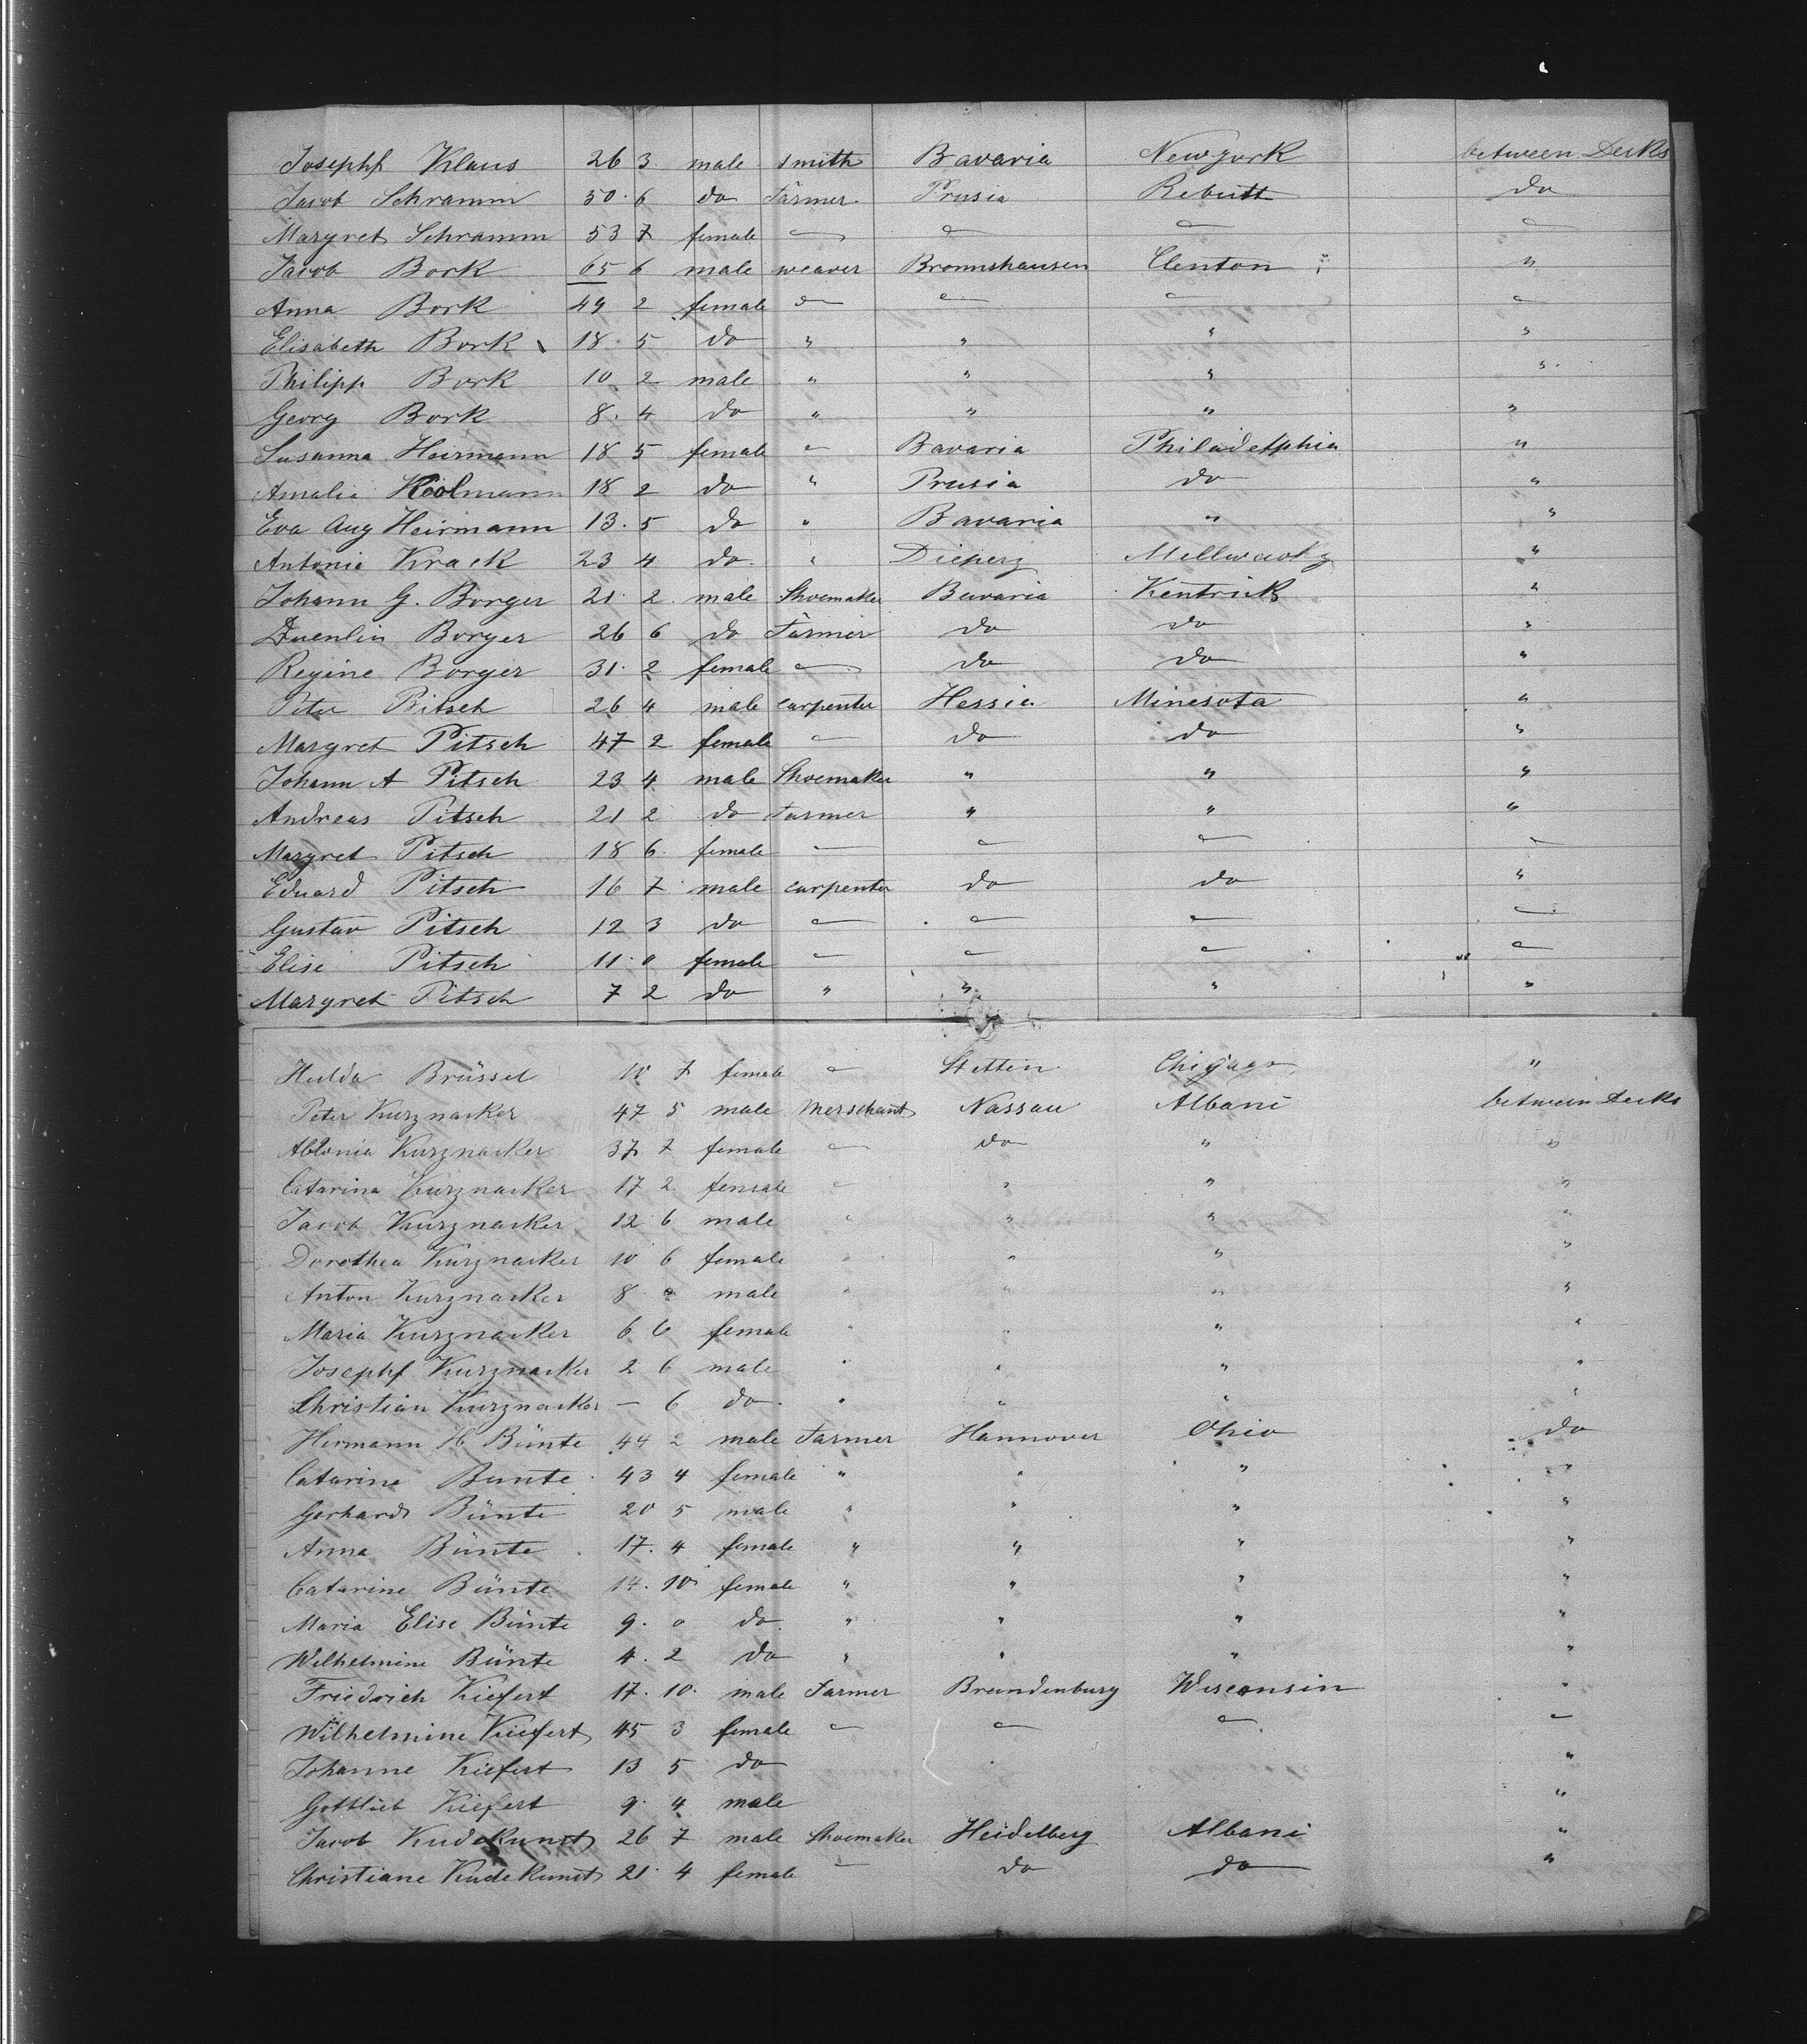 Josephf Klaus 26 3 male smith Bavaria Newyork between Decks
Jacob Schramm 50 6 do Farmer Prusia Rebutt do
Margret Schramm 53 7 female — — — —
Jacob Bork 65 6 male weaver Bronnshausen Clenton "
Anna Bork 49 2 female — — — —
Elisabeth Bork 18 5 do " " " "
Philipp Bork 10 2 male " " " "
Georg Bork 8 4 do " " " "
Susanna Heirmann 18 5 female — Bavaria Philadelphia "
Amalie Koolmann 18 2 do " Prusia do "
Eva Aug Heirmann 13 5 do " Bavaria " "
Antonia Krack 23 4 do " Dieperz Mellwacky "
Johann G. Borger 21 2 male Shoemaker Bavaria Kentrick "
Borger 26 6 do Farmer do do "
Regine Borger 31 2 female — do do "
Peter Pitsch 26 4 male carpenter Hessia Minesota "
Margret Pitsch 47 2 female — do do "
Johann A Pitsch 23 4 male Shoemaker " " "
Andreas Pitsch 21 2 do Farmer " " "
Margret Pitsch 18 6 female — — — —
Eduard Pitsch 16 7 male carpenter do do "
Gustav Pitsch 12 3 do — — — —
Elise Pitsch 11 0 female — — — —
Margret Pitsch 7 2 do " " " "
Hulda Brüssel 10 7 female — Stettin Chigago "
Peter Kurznacker 47 5 male Merschant Nassau Albani between Decks
Ablonia Kurznacker 37 7 female — do " "
Catarina Kurznacker 17 2 female — " " "
Jacob Kurznacker 12 6 male " " " "
Dorothea Kurznacker 10 6 female " " " "
Anton Kurznacker 8 male " " " "
Maria Kurznacker 6 6 female " " " "
Josephf Kurznacker 2 6 male " " " "
Christian Kurznacker — 6 do " " " "
Hermann H. Bünte 44 2 male Farmer Hannover Ohio do
Catarine Bunte 43 4 female " " " "
Gerhard Bünte 20 5 male " " " "
Anna Bünte 17 4 female " " " "
Catarine Bünte 14 10 female " " " "
Maria Elise Bünte 9 0 do " " " "
Wilhelmine Bünte 4 2 do " " " "
Friedrich Kiefert 17 10 male Farmer Brandenburg Wisconsin "
Wilhelmine Kiefert 45 3 female — — — —
Johanne Kiefert 13 5 do "
Gottlieb Kiefert 9 4 male "
Jacob Kudekunst 26 7 male Shoemaker Heidelberg Albani "
Christiane Kudekunst 21 4 female — do do "